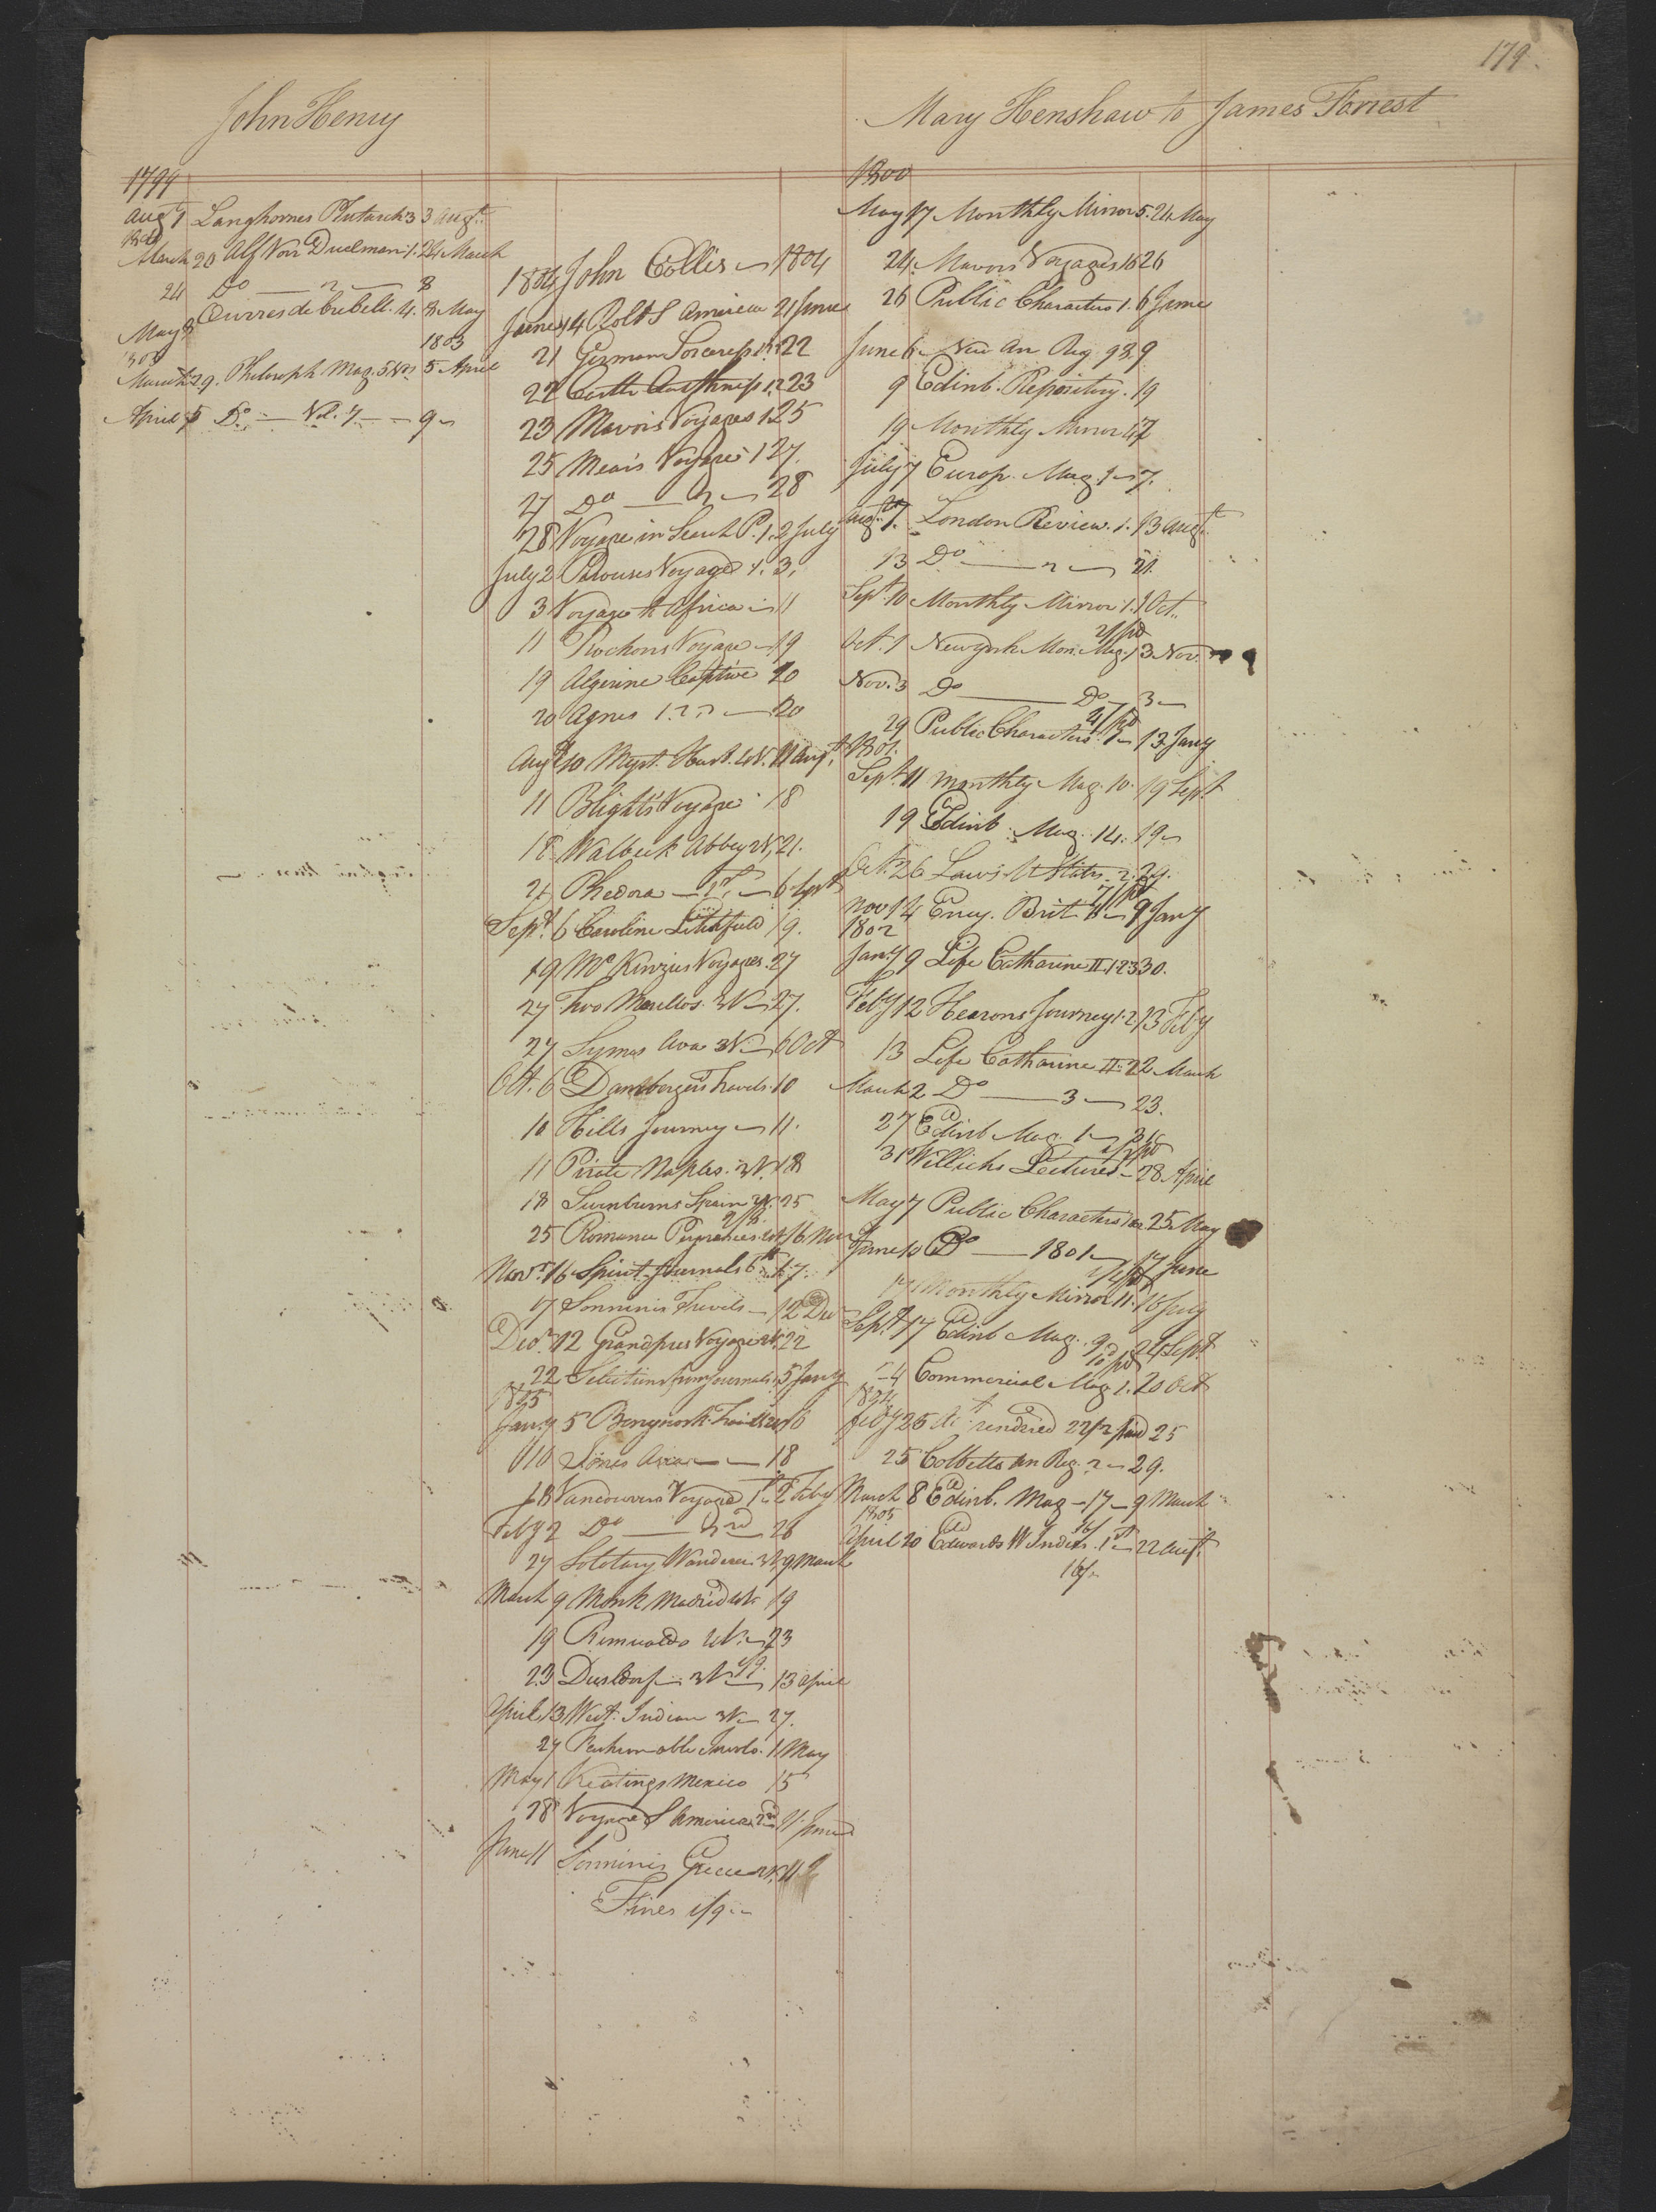 179.
John Henry
1799
Augt 1 Langhornes Plutarch 3 3 Augt.
March 20 Alf Von Duelman 1. 24 March
24 Do — 2 — 8
May 8 Ouvres de Crebell. 4. 8 May
1803
1803
March 29. Philosoph Mag. 5 5 April
April 5 Do — Vol. 7 — 9
1804 John Collis 1804
June 14 Rolt S America 21 June
21 German Sorceress 22
22 Castle 1.2 23
23 Mavors Voyages 1 25
25 Mear's Voyages 1 27.
27 Do — 2 — 28
28 Voyage in Search P. 1. 2 July
July 2 Perouses Voyage 1. 3.
3 Voyage to Africa 11
11 Rochons Voyage 19
19 Algerine Captive 20
20 Agnes 1.2.3 — 20
Augt 10 Myst. Husb. 4V. 11 Augt.
11 Blight's Voyage 18
18 Walbeck Abbey 2V, 21.
21 Phedora — 1st — 6 Sept
Sept. 6 Caroline Litchfield 19.
19 McKinzies Voyages. 27
27 Two Marillos. 3V 27.
27 Symes Ava 3V. 6 Oct
Oct. 6 Dambergers Travels. 10
10 Hills Journey 11.
11 Pirate Naples. 3V. 18
18 Swinburns Spain 2V. 25
25 Romance Pyrenees. 16 Nov
Novr. 16 Spirit Journals 6th 17.
17 Sonninis Travels — 12 Dec
Decr. 12 Grandpres Voyage 2V. 22
22 Selections from Journals 5 Jany
1805
Jany 5 10
10 Jones Asia — 18
18 Vancouvers Voyage 1st 2 Feby
Feby 2 Do — 2nd 26
27 Solotary Wanderer 3V 9 March
March 9 Monk Madrid 4V 19
19 Romualdo 2V. 23
23 Dusldorf 3V 13 April
April 13 West Indian 3V 27.
27 Fashionable Involv. 1 May
May 1 Keatings Mexico 15
28 Voyage S America 2nd 11 June
June 11 Sonninis Greece 2V. 11
Fines 1/9.
Mary Henshaw to James Forrest
1800
May 17 Monthly Mirror 5. 24 May
24. Mavors Voyages 16 26
26 Public Characters 1. 6 June
June 6 New An Reg. 93. 9
9 Edinb. Repository. 19
19 Monthly Mirror 4 27
July 7 Europ. Mag. 1 7.
Augt. 7. London Review. 1. 13 Augt.
13 Do — 2 — 21.
Sept. 10 Monthly Mirror 1. 1 Oct.
Oct. 1 New york Mon. Mag. 1 3 Nov.
Nov. 3 Do — Do — 3
29 Public Characters. 13 Jany
1801.
Sept. 11 Monthly Mag. 10. 19 Sept
19 Edinb. Mag. 14. 19
Oct. 26 Laws U States 2. 29.
Nov 14 Ency. Brit 9 Jany
1802
Jany 9 Life Catharine II 1.2.3 30.
Feby 12 Hearons Journey 1.2. 13 Feby
13 Life Catharine II. 2 2 March
March 2 Do — 3 — 23.
27 Edinb Mag. 1 31
31 Willichs Lectures — 28 April
May 7 Public Characters 25 May
June 10 Do — 1801 — 17 June
17 Monthly Mirror 11. 16 July
Sept. 17 Edinb Mag. 9 24 Sept.
24 Commercial Mag. 1. 20 Oct
1804
Feby 25 Act. rendered 22/2 paid 25
25 Cobbetts An Reg. 2 29.
March 8 Edinb. Mag — 17 — 9 March
1805
April 20 Edwards W Indies. 1st 22 Augt.
16/